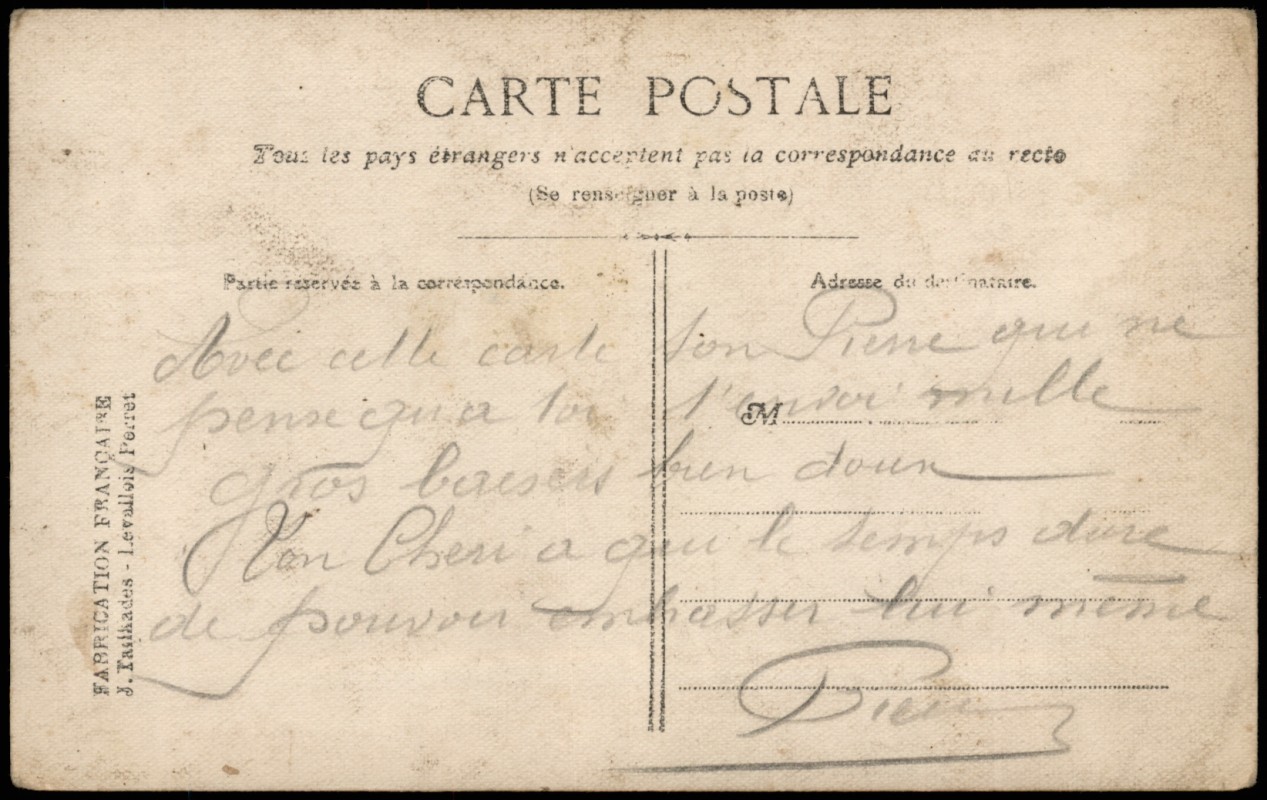 CARTE POSTALE
Tous les pays étrangers n'acceptent pas la correspondance au recto
(Se renseigner à la poste)
Partie reservée à la correspondance.
Adresse du destinataire.
FABRICATION FRANÇAIRE
J. Tailhades - Levallois Perret
M
Avec cette carte ton Pierre qui ne
pense qu'a toi t'envoi mille
gros baisers bien doux
Ton Cheri a qui le temps dure
de pouvoir embrasser lui même
Pierre